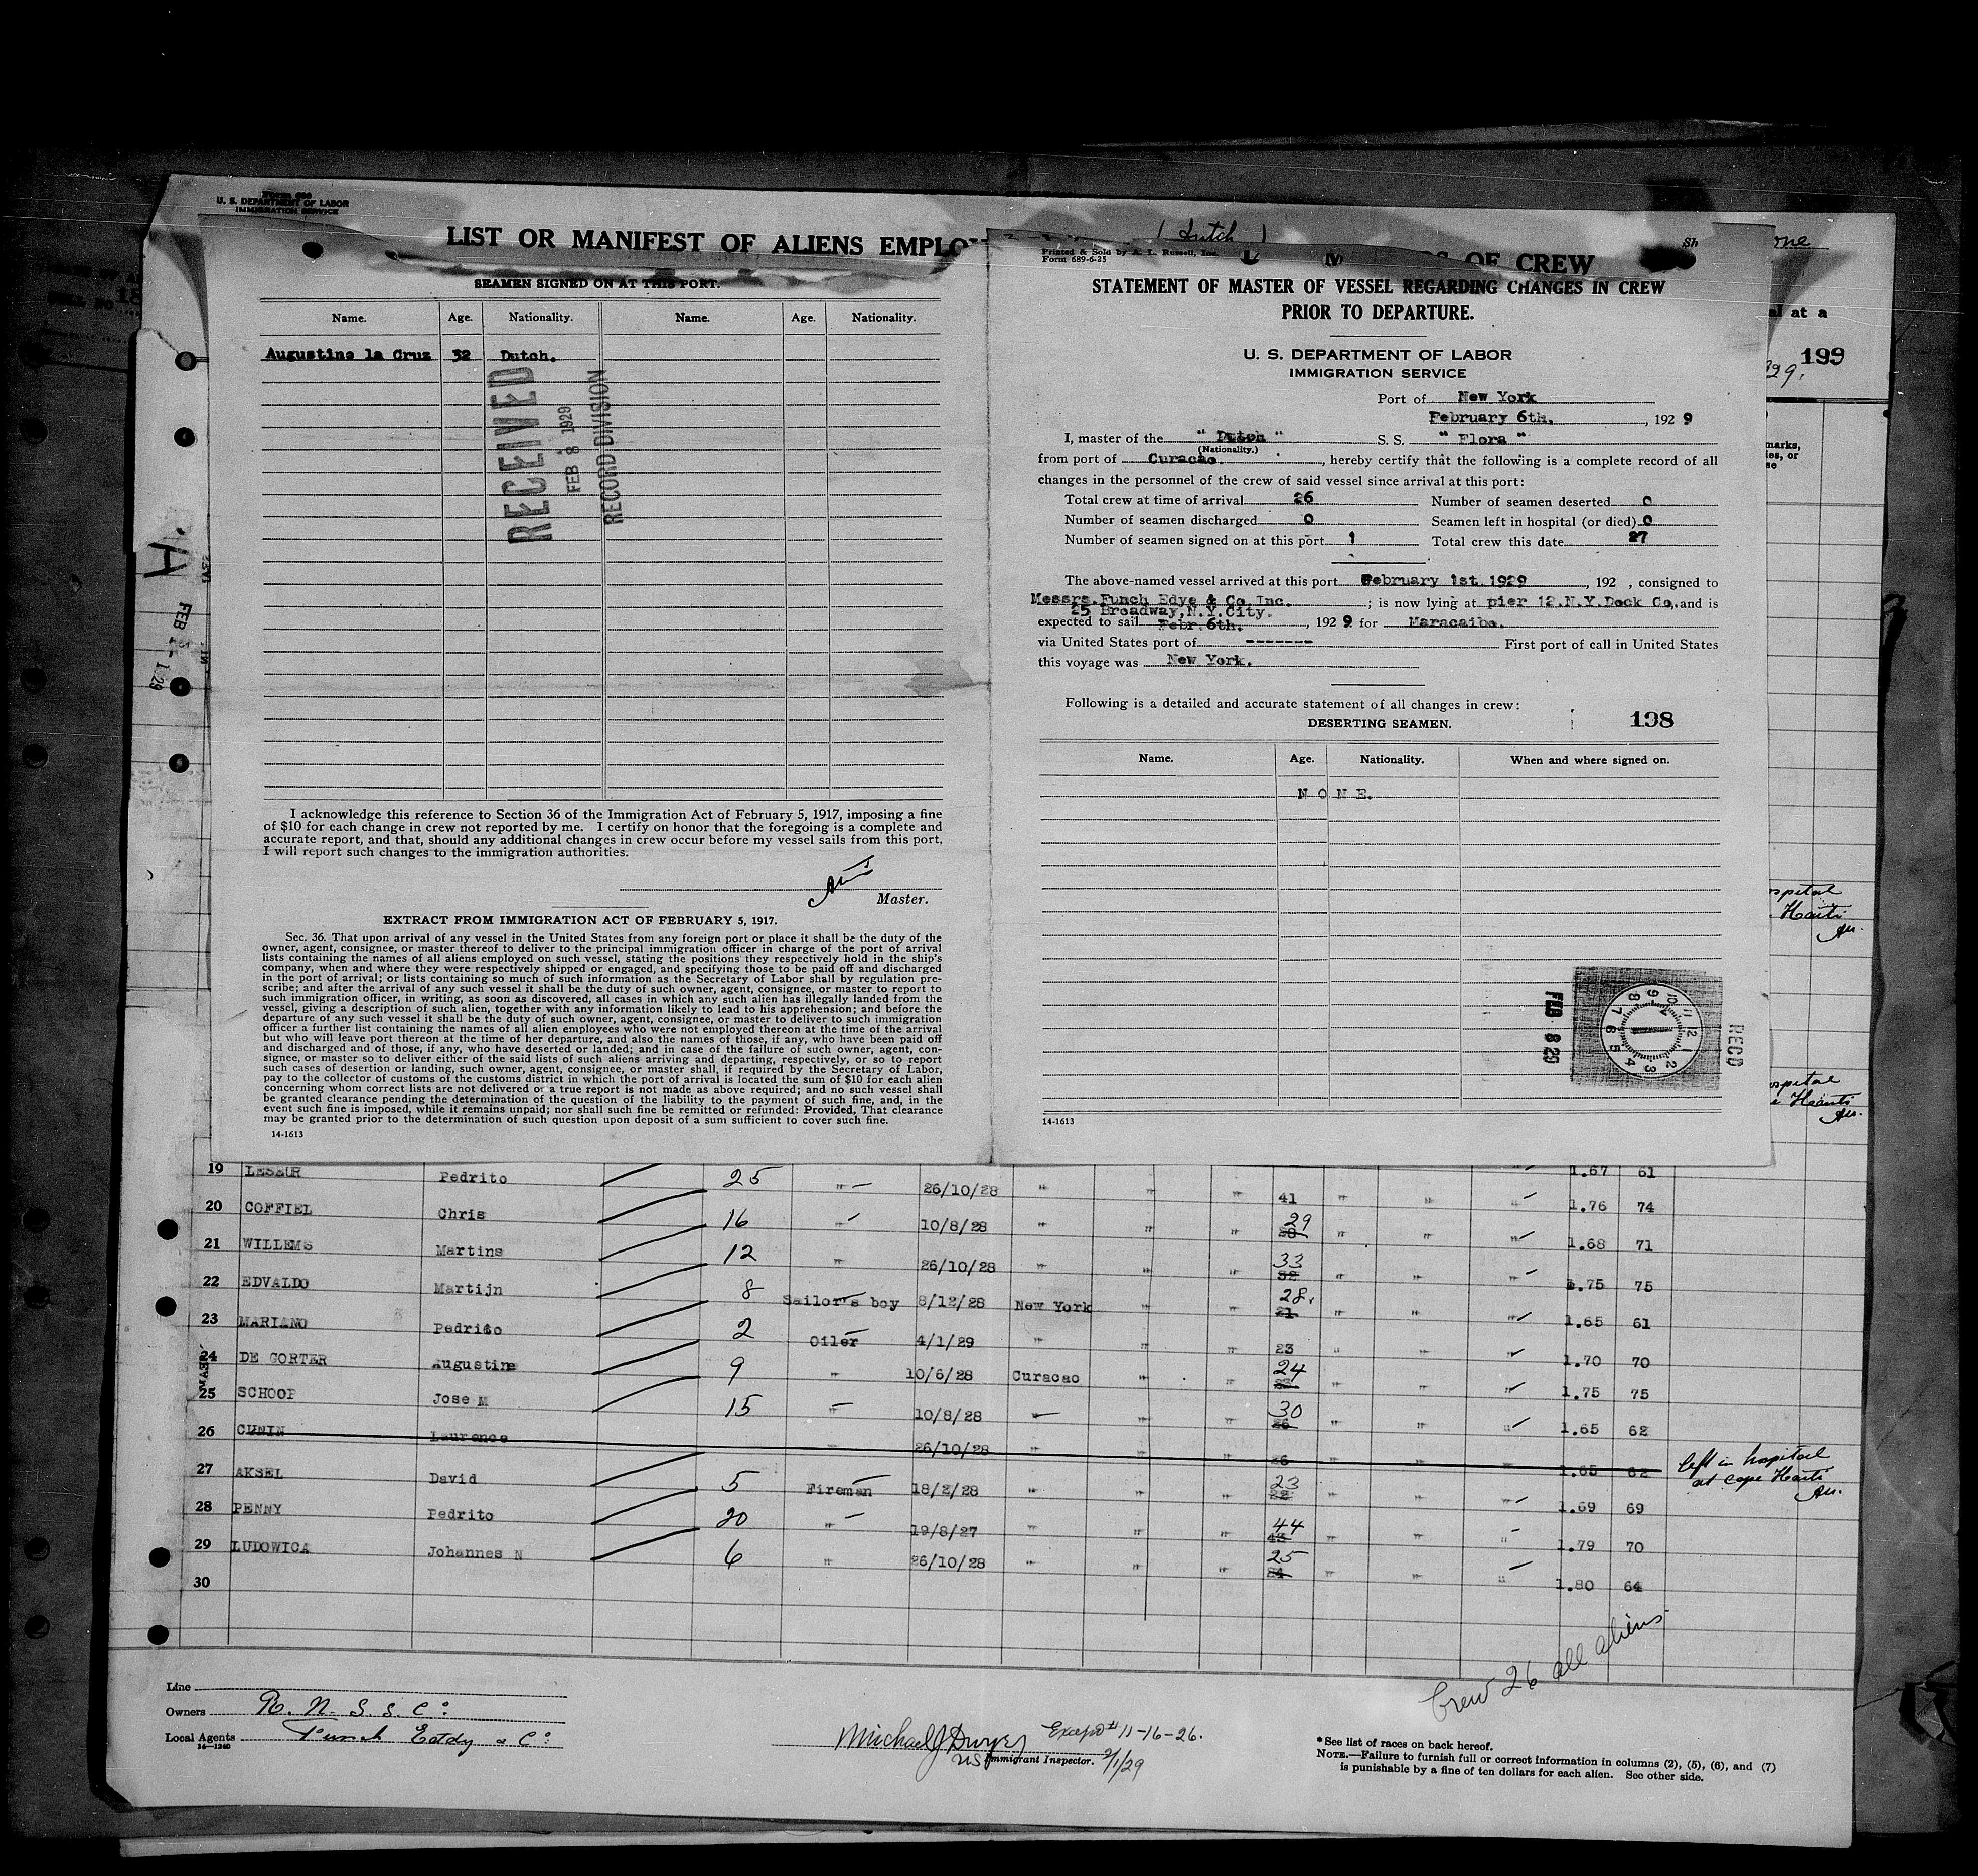 Form 689
U. S. DEPARTMENT OF LABOR
IMMIGRATION SERVICE
LIST OR MANIFEST OF ALIENS EMPLO
( Dutch )
OF CREW
199
SEAMEN SIGNED ON AT THIS PORT.
Name. Age. Nationality. Name. Age. Nationality.
Augustine la Cruz 32 Dutch.
RECEIVED
FEB 8 1929
RECORD DIVISION
I acknowledge this reference to Section 36 of the Immigration Act of February 5, 1917, imposing a fine
of $10 for each change in crew not reported by me. I certify on honor that the foregoing is a complete and
accurate report, and that, should any additional changes in crew occur before my vessel sails from this port,
I will report such changes to the immigration authorities.
Master.
EXTRACT FROM IMMIGRATION ACT OF FEBRUARY 5, 1917.
Sec. 36. That upon arrival of any vessel in the United States from any foreign port or place it shall be the duty of the
owner, agent, consignee, or master thereof to deliver to the principal immigration officer in charge of the port of arrival
lists containing the names of all aliens employed on such vessel, stating the positions they respectively hold in the ship's
company, when and where they were respectively shipped or engaged, and specifying those to be paid off and discharged
in the port of arrival; or lists containing so much of such information as the Secretary of Labor shall by regulation pre-
scribe; and after the arrival of any such vessel it shall be the duty of such owner, agent, consignee, or master to report to
such immigration officer, in writing, as soon as discovered, all cases in which any such alien has illegally landed from the
vessel, giving a description of such alien, together with any information likely to lead to his apprehension; and before the
departure of any such vessel it shall be the duty of such owner, agent, consignee, or master to deliver to such immigration
officer a further list containing the names of all alien employees who were not employed thereon at the time of the arrival
but who will leave port thereon at the time of her departure, and also the names of those, if any, who have been paid off
and discharged and of those, if any, who have deserted or landed; and in case of the failure of such owner, agent, con-
signee, or master so to deliver either of the said lists of such aliens arriving and departing, respectively, or so to report
such cases of desertion or landing, such owner, agent, consignee, or master shall, if required by the Secretary of Labor,
pay to the collector of customs of the customs district in which the port of arrival is located the sum of $10 for each alien
concerning whom correct lists are not delivered or a true report is not made as above required; and no such vessel shall
be granted clearance pending the determination of the question of the liability to the payment of such fine, and, in the
event such fine is imposed, while it remains unpaid; nor shall such fine be remitted or refunded: Provided, That clearance
may be granted prior to the determination of such question upon deposit of a sum sufficient to cover such fine.
14-1613
Printed & Sold by A. L. Russell, Inc.
Form 689-6-25
STATEMENT OF MASTER OF VESSEL REGARDING CHANGES IN CREW
PRIOR TO DEPARTURE.
U. S. DEPARTMENT OF LABOR
IMMIGRATION SERVICE
Port of New York
February 6th. , 192 9
I, master of the " Dutch " S. S. " Flora "
(Nationality.)
from port of Curacao. , hereby certify that the following is a complete record of all
changes in the personnel of the crew of said vessel since arrival at this port:
Total crew at time of arrival 26 Number of seamen deserted 0
Number of seamen discharged 0 Seamen left in hospital (or died) 0
Number of seamen signed on at this port 1 Total crew this date 27
The above-named vessel arrived at this port February 1st.1929 , 192 , consigned to
Messrs.Funch Edye & Co.Inc. ; is now lying at pier 12.N.Y.Dock Co, and is
25 Broadway,N.Y.City.
expected to sail Febr.6th. , 192 9 for Maracaibo.
via United States port of ------- First port of call in United States
this voyage was New York.
Following is a detailed and accurate statement of all changes in crew:
DESERTING SEAMEN. 198
Name. Age. Nationality. When and where signed on.
N O N E.
FEB 8 29
RECD
14-1613
19 LESEUR Pedrito 25 " 26/10/28 " " " 41 " " " 1.67 61
20 COFFIEL Chris 16 " 10/8/28 " " " 29 " " " 1.76 74
21 WILLEMS Martins 12 " 26/10/28 " " " 33 32 " " " 1.68 71
22 EDVALDO Martijn 8 Sailor's boy 8/12/28 New York " " 28 21 " " " 1.75 75
23 MARIANO Pedrito 2 Oiler 4/1/29 " " " 23 " " " 1.65 61
24 DE GORTER Augustine 9 " 10/6/28 Curacao " " 24 " " " 1.70 70
25 SCHOOP Jose M 15 " 10/8/28 " " " 30 26 " " " 1.75 75
26 CUNIN Laurence " 26/10/28 " " " 26 " " " 1.65 62
27 AKSEL David 5 Fireman 18/2/28 " " " 23 22 " " " 1.65 62
left in hospital
at Cape Haiti
28 PENNY Pedrito 20 " 19/8/27 " " " 44 43 " " " 1.69 69
29 LUDOWICA Johannes N 6 " 26/10/28 " " " 25 24 " " " 1.79 70
30 1.80 64
Crew 26 all aliens
Line
Owners R. N. S. S. Co:
Local Agents Funch Eddy & Co:
14-1240
Michael J Dwyer Except # 11-16-26.
US Immigrant Inspector. 2/1/29
* See list of races on back hereof.
NOTE.—Failure to furnish full or correct information in columns (2), (5), (6), and (7)
is punishable by a fine of ten dollars for each alien. See other side.